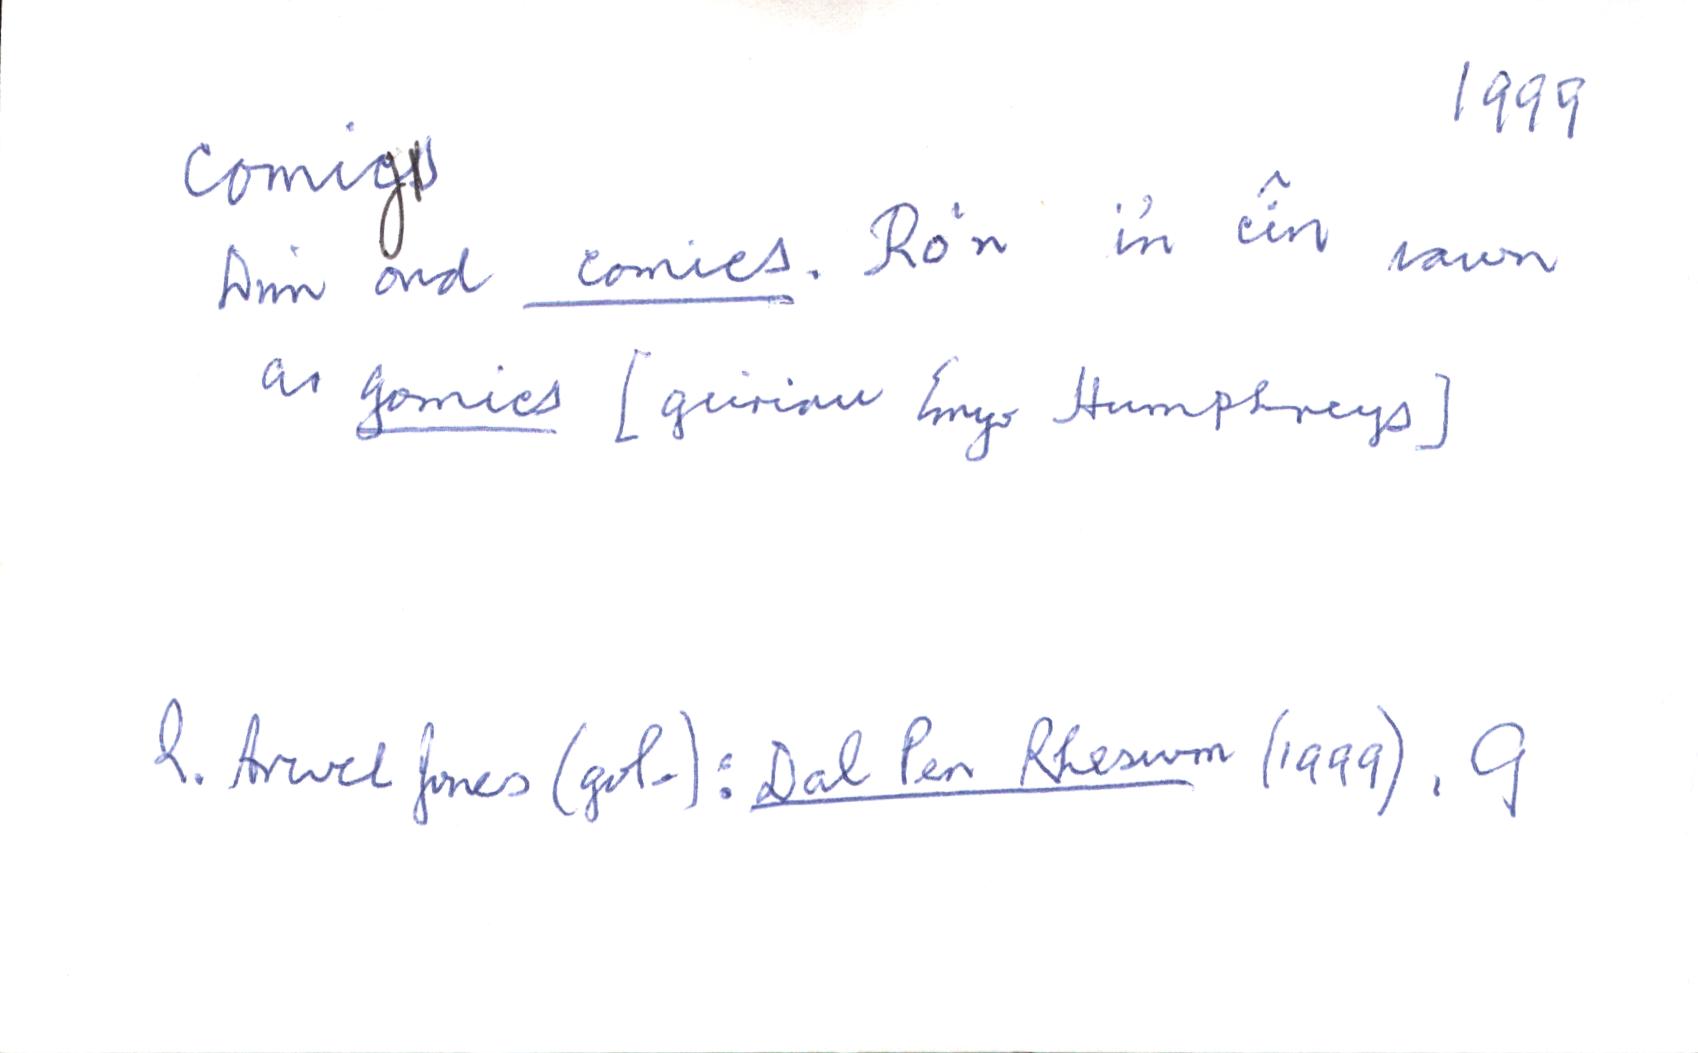 1999
comig
Dim ond comics. Ro'n i'n cîn iawn
ar gomics [geiriau Emyr Humphreys]
R. Arwel Jones (gol.): Dal Pen Rheswm (1999), 9